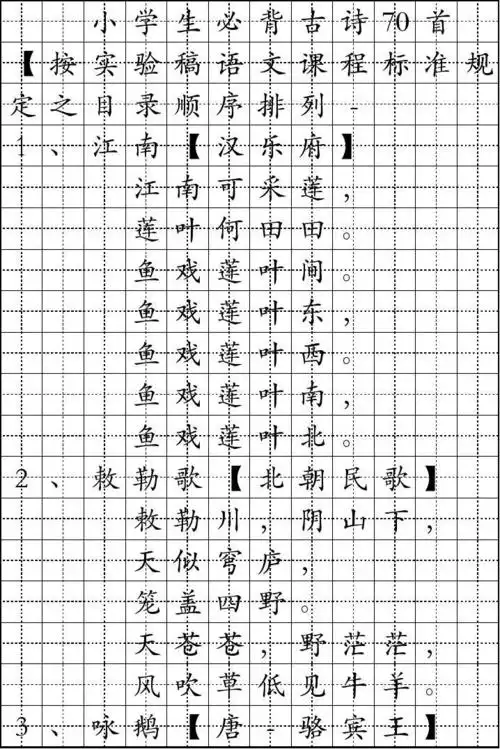 小学生必背古诗70首
【按实验稿语文课程标准规
定之目录顺序排列-
1、江南【汉乐府】
江南可采莲，
莲叶何田田。
鱼戏莲叶间。
鱼戏莲叶东，
鱼戏莲叶西。
鱼戏莲叶南，
鱼戏莲叶北。
2、敕勒歌【北朝民歌】
敕勒川，阴山下，
天似穹庐，
笼盖四野。
天苍苍，野茫茫，
风吹草低见牛羊。
3、咏鹅【唐-骆宾王】